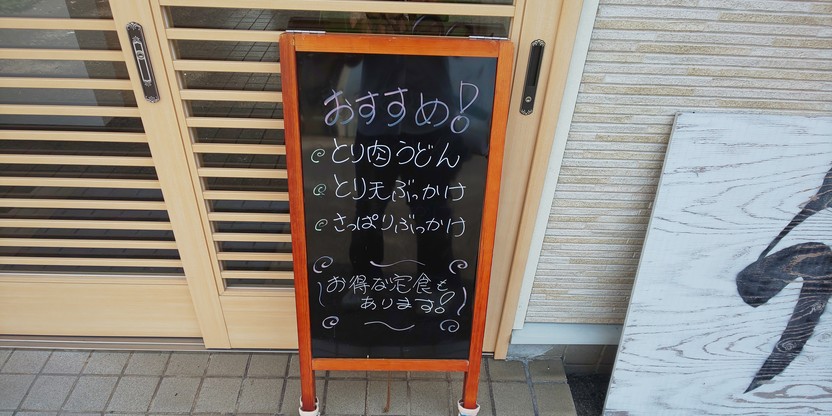 おすすめ!
とり肉うどん
とり天ぶっかけ
さっぱりぶっかけ
お得な定食も
あります!